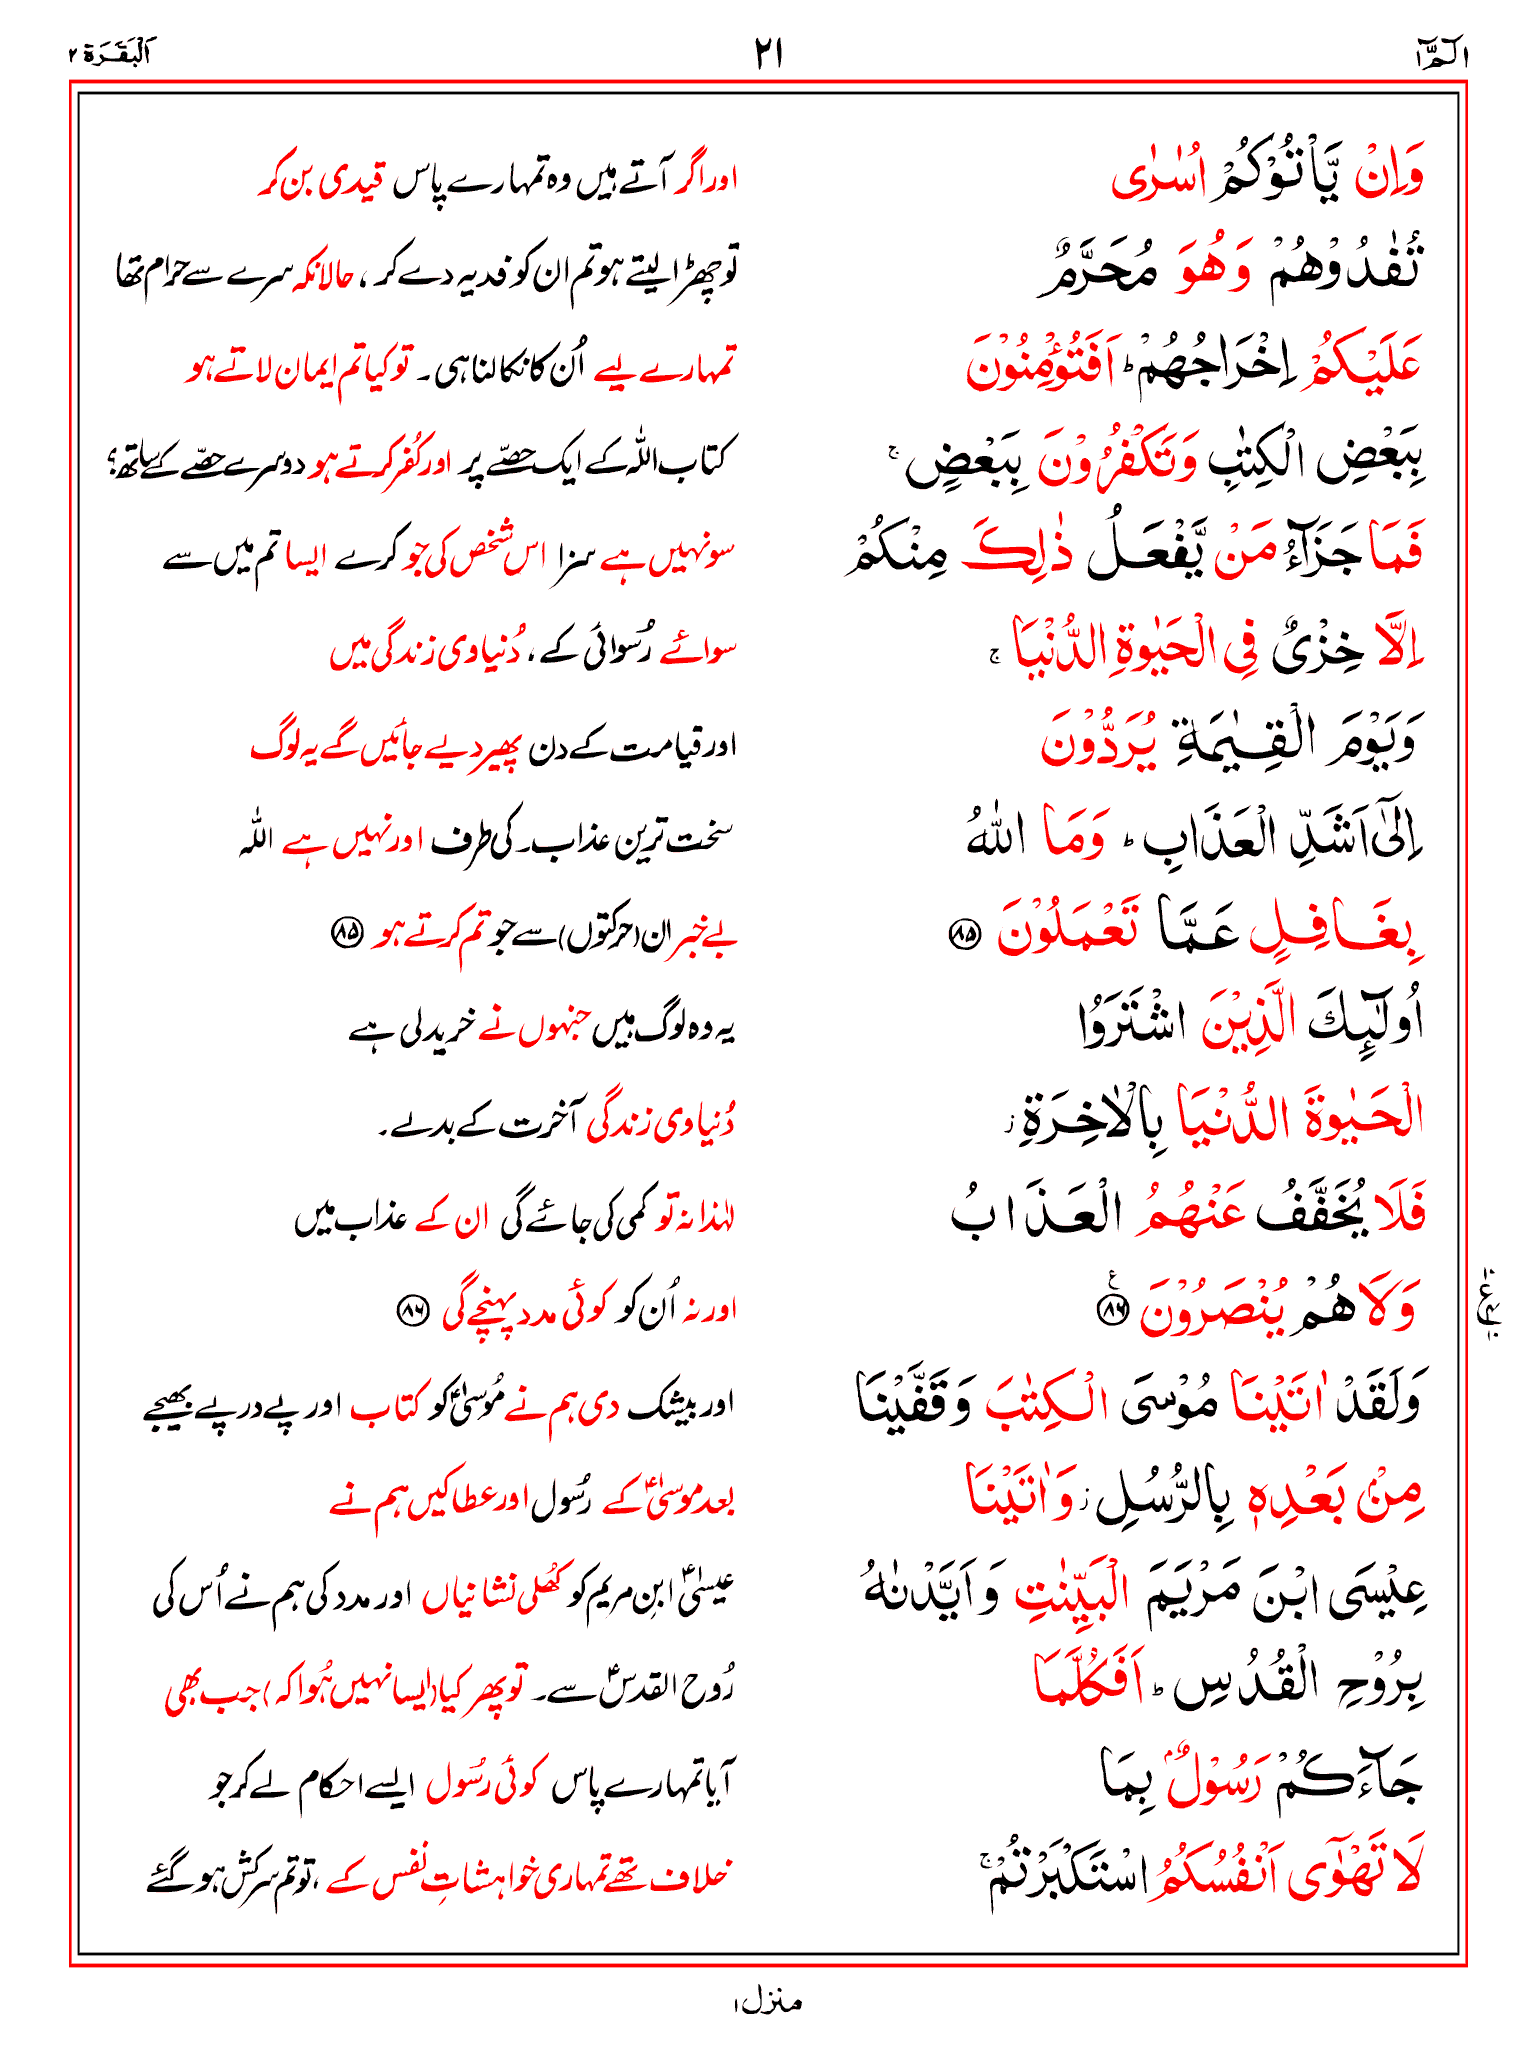 الٓمّٓ ١
٢١
اَلْبَقَرَة ٢
وَاِنْ يَّاْتُوْكُمْ اُسٰرٰى
اور اگر آتے ہیں وہ تمہارے پاس قیدی بن کر
تُفٰدُوْهُمْ وَهُوَ مُحَرَّمٌ
تو چھڑا لیتے ہو تم ان کو فدیہ دے کر ، حالانکہ سرے سے حرام تھا
عَلَيْكُمْ اِخْرَاجُهُمْ ؕ اَفَتُؤْمِنُوْنَ
تمہارے لیے اُن کا نکالنا ہی۔ تو کیا تم ایمان لاتے ہو
بِبَعْضِ الْكِتٰبِ وَتَكْفُرُوْنَ بِبَعْضٍ ۚ
کتاب اللہ کے ایک حصّے پر اور کُفر کرتے ہو دوسرے حصّے کے ساتھ؟
فَمَا جَزَآءُ مَنْ يَّفْعَلُ ذٰلِكَ مِنْكُمْ
سو نہیں ہے سزا اس شخص کی جو کرے ایسا تم میں سے
اِلَّا خِزْىٌ فِى الْحَيٰوةِ الدُّنْيَا ۚ
سوائے رُسوائی کے، دُنیاوی زندگی میں
وَيَوْمَ الْقِيٰمَةِ يُرَدُّوْنَ
اور قیامت کے دن پھیر دیے جائیں گے یہ لوگ
اِلٰٓى اَشَدِّ الْعَذَابِ ؕ وَمَا اللّٰهُ
سخت ترین عذاب۔ کی طرف اور نہیں ہے اللہ
بِغَافِلٍ عَمَّا تَعْمَلُوْنَ ۸۵
بے خبر ان (حرکتوں) سے جو تم کرتے ہو ۸۵
اُولٰٓئِكَ الَّذِيْنَ اشْتَرَوُا
یہ وہ لوگ ہیں جنہوں نے خرید لی ہے
الْحَيٰوةَ الدُّنْيَا بِالْاٰخِرَةِ ز
دُنیاوی زندگی آخرت کے بدلے۔
فَلَا يُخَفَّفُ عَنْهُمُ الْعَذَابُ
لہٰذا نہ تو کمی کی جائے گی ان کے عذاب میں
وَلَا هُمْ يُنْصَرُوْنَ ۸۶ ع
اور نہ اُن کو کوئی مدد پہنچے گی ۸۶
وَلَقَدْ اٰتَيْنَا مُوْسَى الْكِتٰبَ وَقَفَّيْنَا
اور بیشک دی ہم نے مُوسٰیؑ کو کتاب اور پے در پے بھیجے
مِنْۢ بَعْدِهٖ بِالرُّسُلِ ز وَاٰتَيْنَا
بعد موسٰیؑ کے رسُول اور عطا کیں ہم نے
عِيْسَى ابْنَ مَرْيَمَ الْبَيِّنٰتِ وَاَيَّدْنٰهُ
عیسٰیؑ ابنِ مریم کو کُھلی نشانیاں اور مدد کی ہم نے اُس کی
بِرُوْحِ الْقُدُسِ ؕ اَفَكُلَّمَا
رُوح القدسؑ سے۔ تو پھر کیا (ایسا نہیں ہُوا کہ) جب بھی
جَآءَكُمْ رَسُوْلٌۢ بِمَا
آیا تمہارے پاس کوئی رسُول ایسے احکام لے کر جو
لَا تَهْوٰٓى اَنْفُسُكُمُ اسْتَكْبَرْتُمْ ۚ
خلاف تھے تمہاری خواہشاتِ نفس کے ، تو تم سرکش ہوگئے
منزل ١